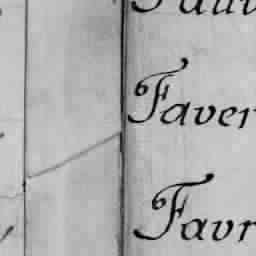 Faver
Favr